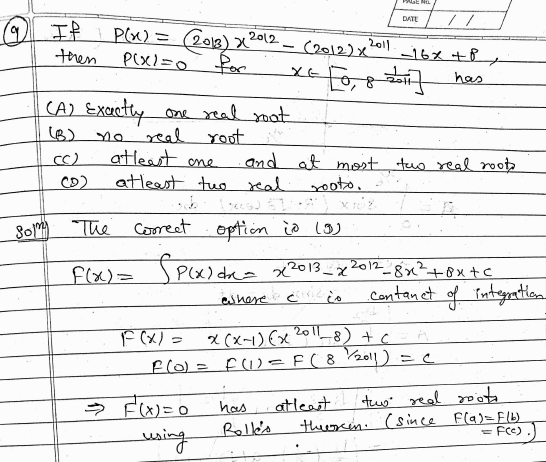 PAGE NO.
DATE / /
(9) If P(x) = (2013) x^2012 - (2012) x^2011 - 16x + 8,
then P(x) = 0 for x ∈ [0, 8^(1/2011)] has
(A) Exactly one real root
(B) no real root
(C) atleast one and at most two real roots
(D) atleast two real roots.
Sol^n) The correct option is (D)
F(x) = ∫ P(x) dx = x^2013 - x^2012 - 8x^2 + 8x + c
where c is contanct of integration
F(x) = x(x-1)(x^2011 - 8) + c
F(0) = F(1) = F(8^(1/2011)) = c
⇒ F'(x) = 0 has atleast two real roots
using Rolle's theorem. (since F(a) = F(b)
= F(c).)